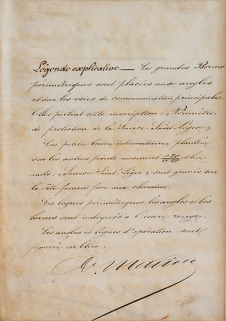 Légende explicative. — Les grandes Bornes
périmétriques sont placées aux angles
et sur les voies de communication principales
Elles portent cette inscription : Périmètre
de protection de la Source Saint Léger,
Les petites bornes intermédiaires plantées
sur les autres points mesurent
Source Saint Léger et sont gravés sur
le côté faisant face aux chemins.
Les lignes périmétriques, les angles et les
bornes sont indiqués à l'encre rouge.
Les angles et lignes d'opération sont
figurés en bleu.